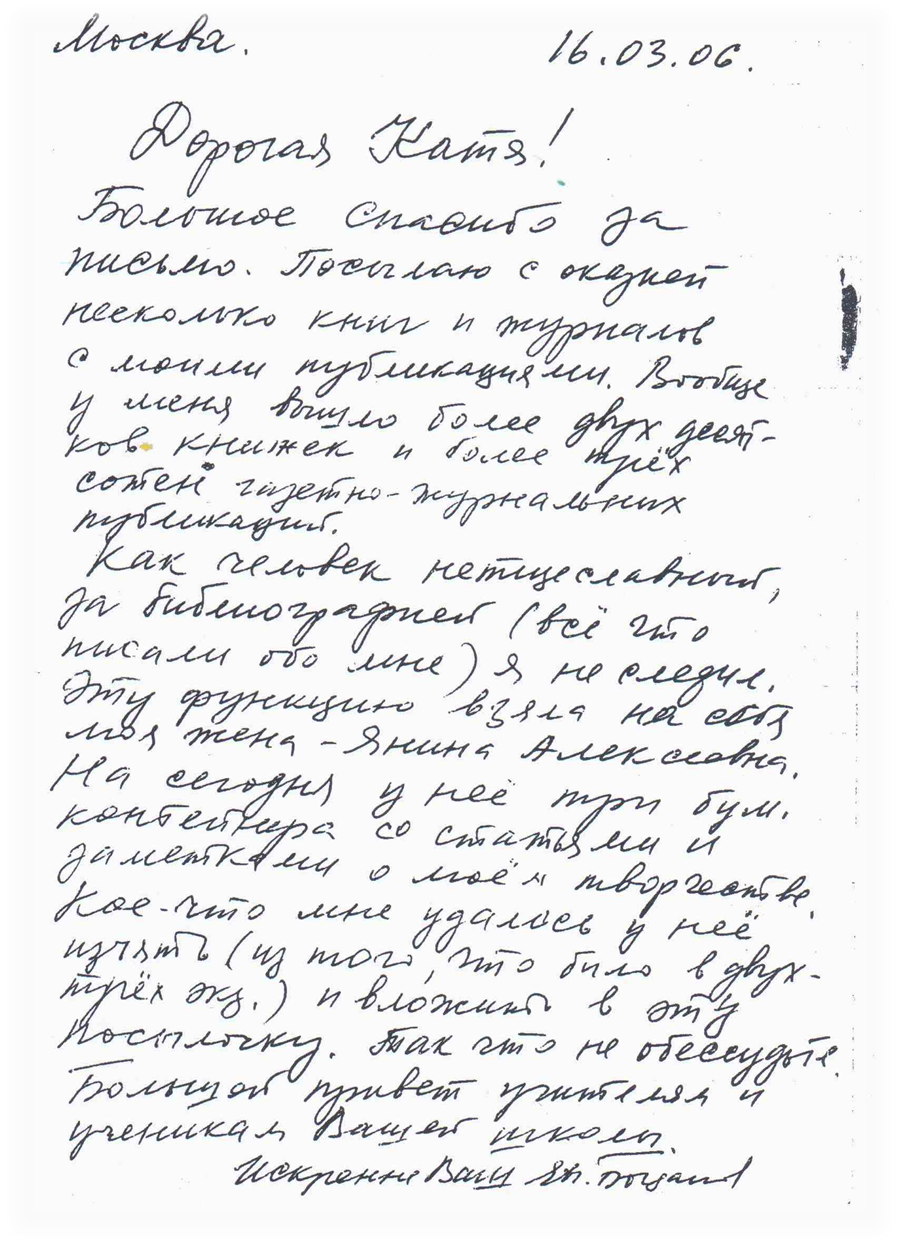 Москва.
16.03.06.
Дорогая Катя!
Большое спасибо за
письмо. Посылаю с оказией
несколько книг и журналов
с моими публикациями. Вообще
у меня вышло более двух десят-
ков книжек и более трёх
сотен газетно-журнальных
публикаций.
Как человек нетщеславный,
за библиографией (всё что
писали обо мне) я не следил.
Эту функцию взяла на себя
моя жена - Янина Алексеевна.
На сегодня у неё три бум.
контейнера со статьями и
заметками о моём творчестве.
Кое-что мне удалось у неё
изъять (из того, что было в двух-
трёх экз.) и вложить в эту
посылочку. Так что не обессудьте.
Большой привет учителям и
ученикам Вашей школы.
Искренне Ваш